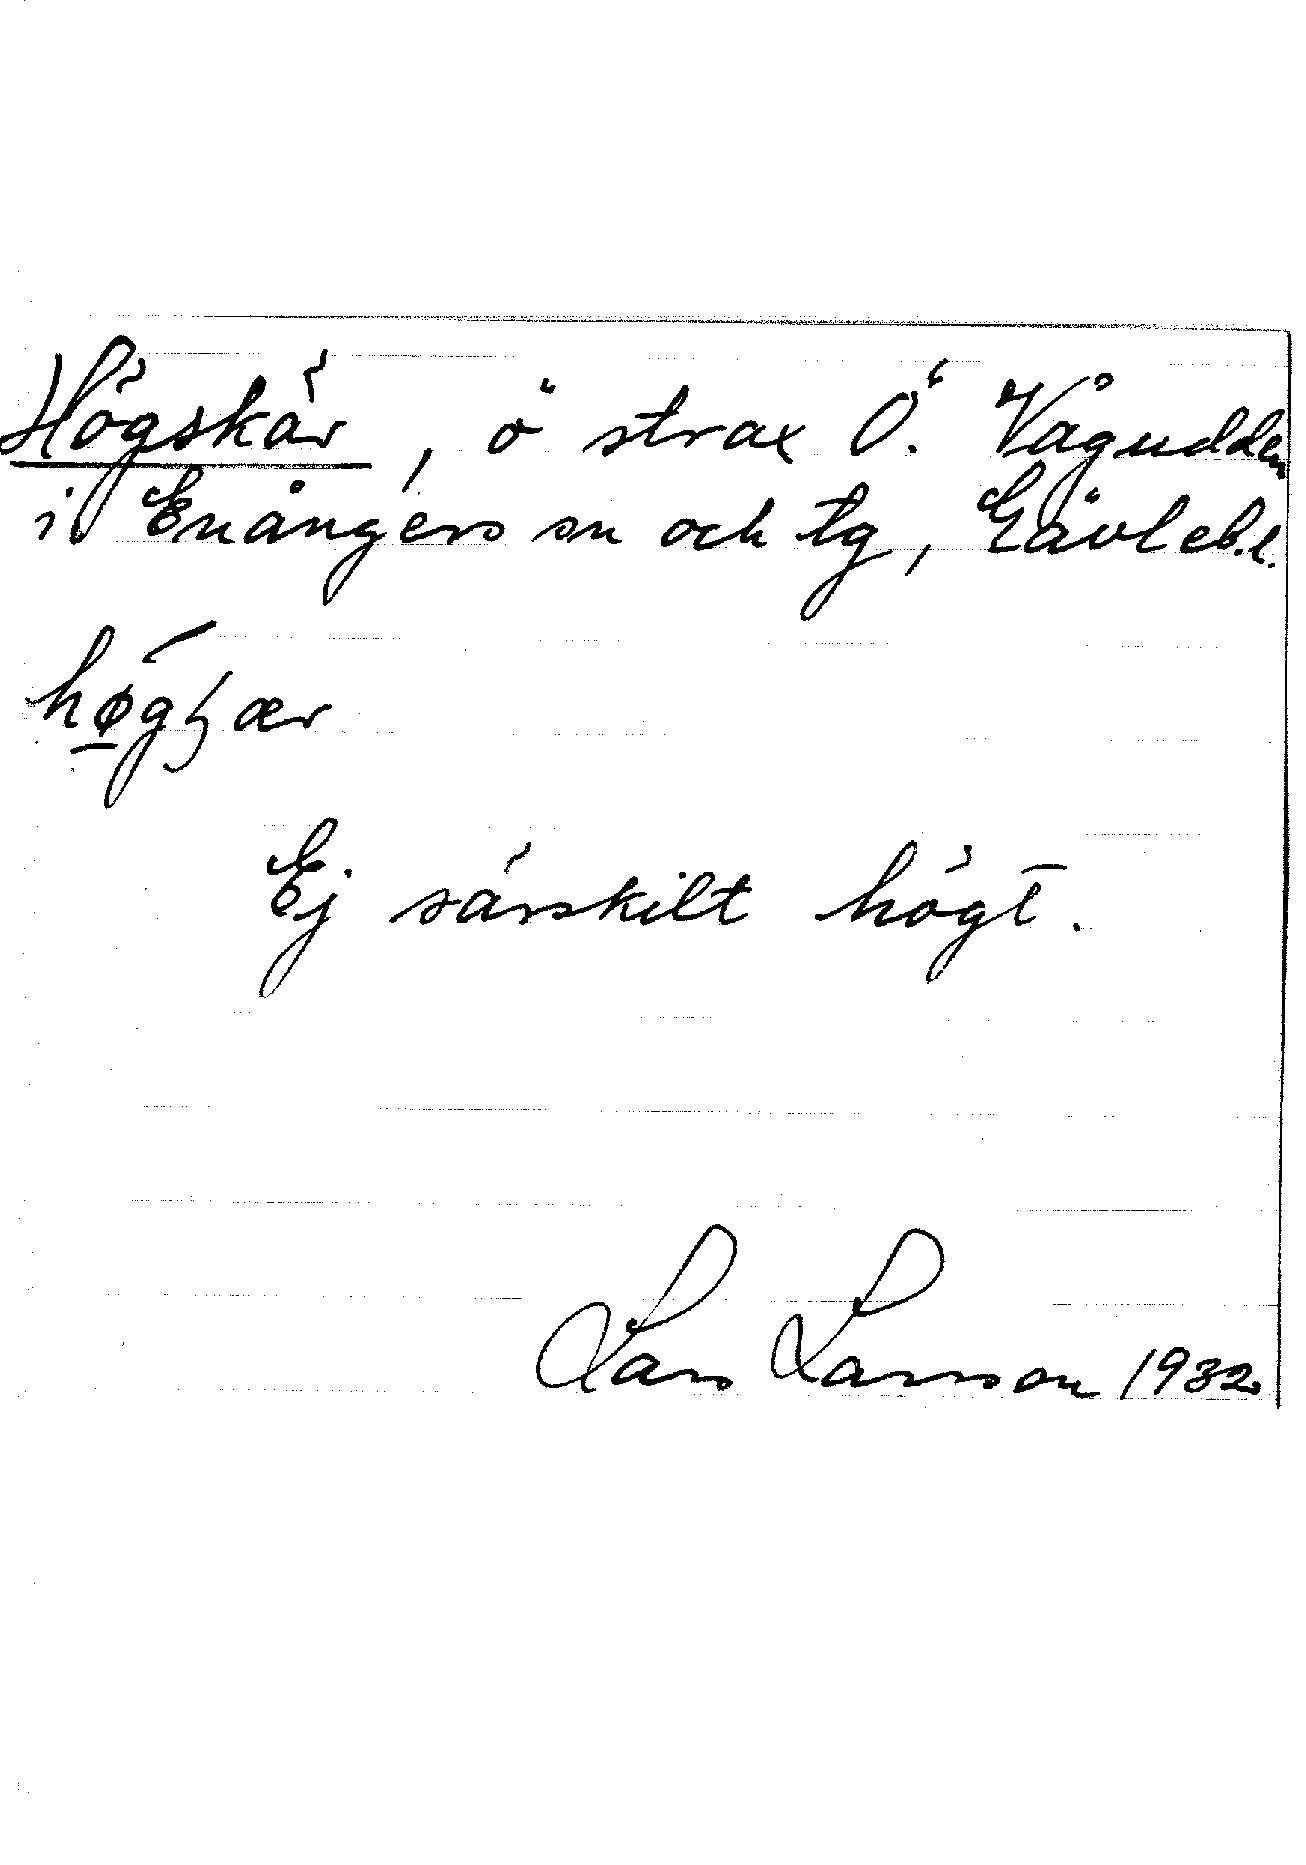 Högskär, ö strax Ö. Vågudden
i Enångers sn och tg, Gävleb.l.
Ej särskilt högt.
Lars Larsson 1932